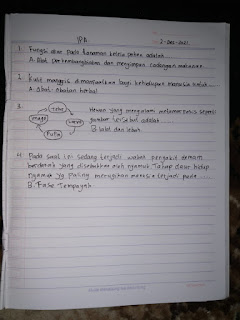 IPA
2-Des-2021
1. Fungsi akar pada tanaman kelapa pohon adalah
A. Alat perkembangbiakan dan menyimpan cadangan makanan
2. Kulit manggis dimanfaatkan bagi kehidupan manusia untuk
A. Obat-Obatan herbal
3.
Telur
Larva
Pupa
Imago
Hewan yang mengalami metamorfosis seperti
gambar tersebut adalah
B. lalat dan lebah
4. Pada saat ini sedang terjadi wabah penyakit demam
berdarah yang disebabkan oleh nyamuk. Tahap daur hidup
nyamuk yg paling merugikan manusia terjadi pada
B. Fase